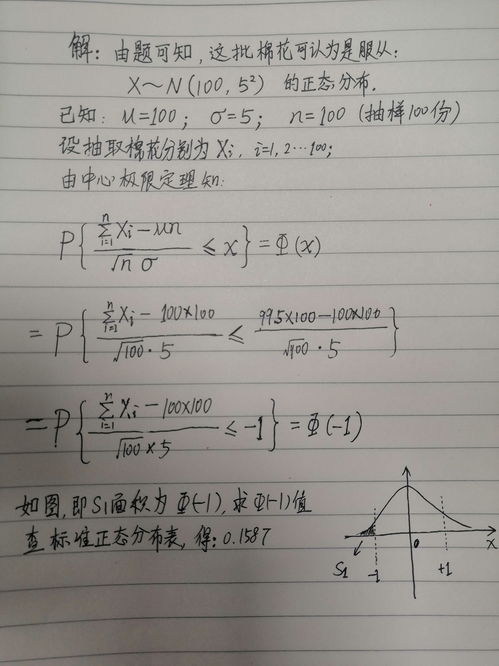 解：由题可知，这批棉花可认为是服从：
X～N(100, 5²) 的正态分布.
已知：μ=100； σ=5； n=100 (抽样100份)
设抽取棉花分别为 Xi，i=1, 2⋯100；
由中心极限定理知：
P{ (∑_{i=1}^{n} Xi − μn) / (√n σ) ≤ x } = Φ(x)
= P{ (∑_{i=1}^{n} Xi − 100×100) / (√100 · 5) ≤ (99.5×100−100×100) / (√100 · 5) }
= P{ (∑_{i=1}^{n} Xi − 100×100) / (√100 × 5) ≤ −1 } = Φ(−1)
如图，即S1面积为 Φ(−1)，求Φ(−1)值
查标准正态分布表，得：0.1587
S1 -1 0 +1 X